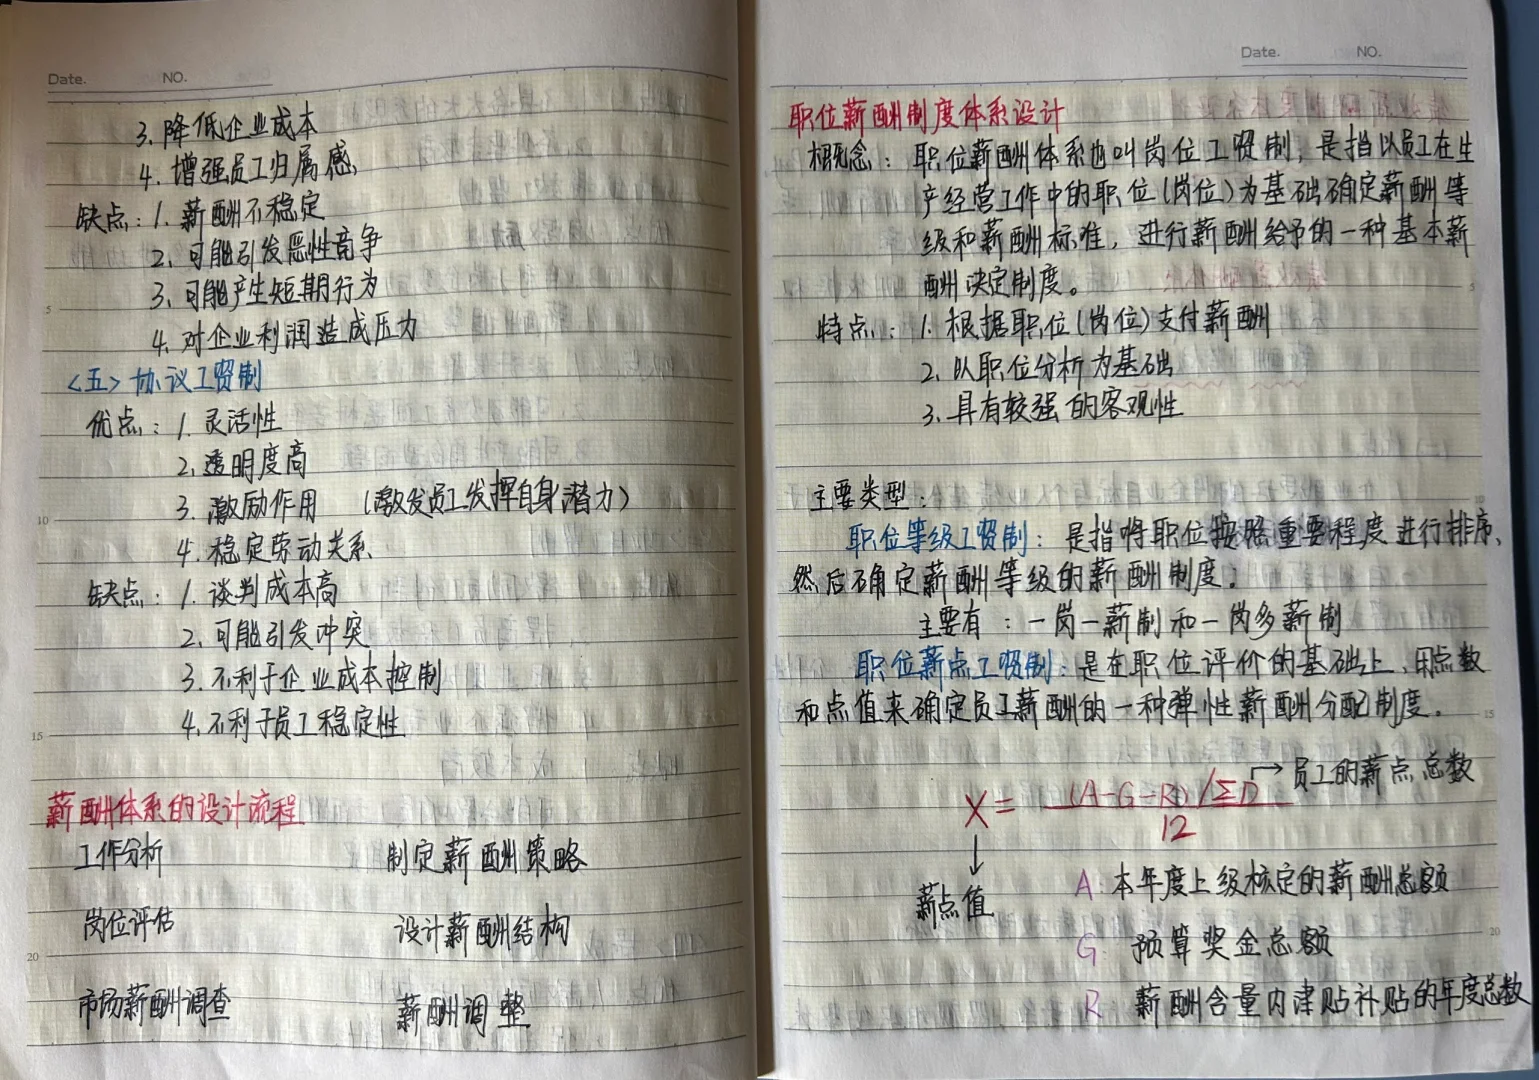 Date. NO.
3、降低企业成本
4、增强员工归属感
缺点：1、薪酬不稳定
2、可能引发恶性竞争
3、可能产生短期行为
5
4、对企业利润造成压力
<五> 协议工资制
优点：1、灵活性
2、透明度高
3、激励作用 （激发员工发挥自身潜力）
10
4、稳定劳动关系
缺点：1、谈判成本高
2、可能引发冲突
3、不利于企业成本控制
4、不利于员工稳定性
15
薪酬体系的设计流程
工作分析 制定薪酬策略
岗位评估 设计薪酬结构
20
市场薪酬调查 薪酬调整
Date. NO.
职位薪酬制度体系设计
概念：职位薪酬体系也叫岗位工资制，是指以员工在生
产经营工作中的职位（岗位）为基础确定薪酬等
级和薪酬标准，进行薪酬给予的一种基本薪
酬决定制度。
5
特点：1、根据职位（岗位）支付薪酬
2、以职位分析为基础
3、具有较强的客观性
主要类型：
10
职位等级工资制：是指将职位按照重要程度进行排序、
然后确定薪酬等级的薪酬制度；
主要有：一岗一薪制和一岗多薪制
职位薪点工资制：是在职位评价的基础上、用点数
和点值来确定员工薪酬的一种弹性薪酬分配制度。
15
→员工的薪点总数
X = (A-G-R)/ΣD
12
↓
薪点值
A：本年度上级核定的薪酬总额
G 预算奖金总额
20
R 薪酬含量内津贴补贴的年度总数